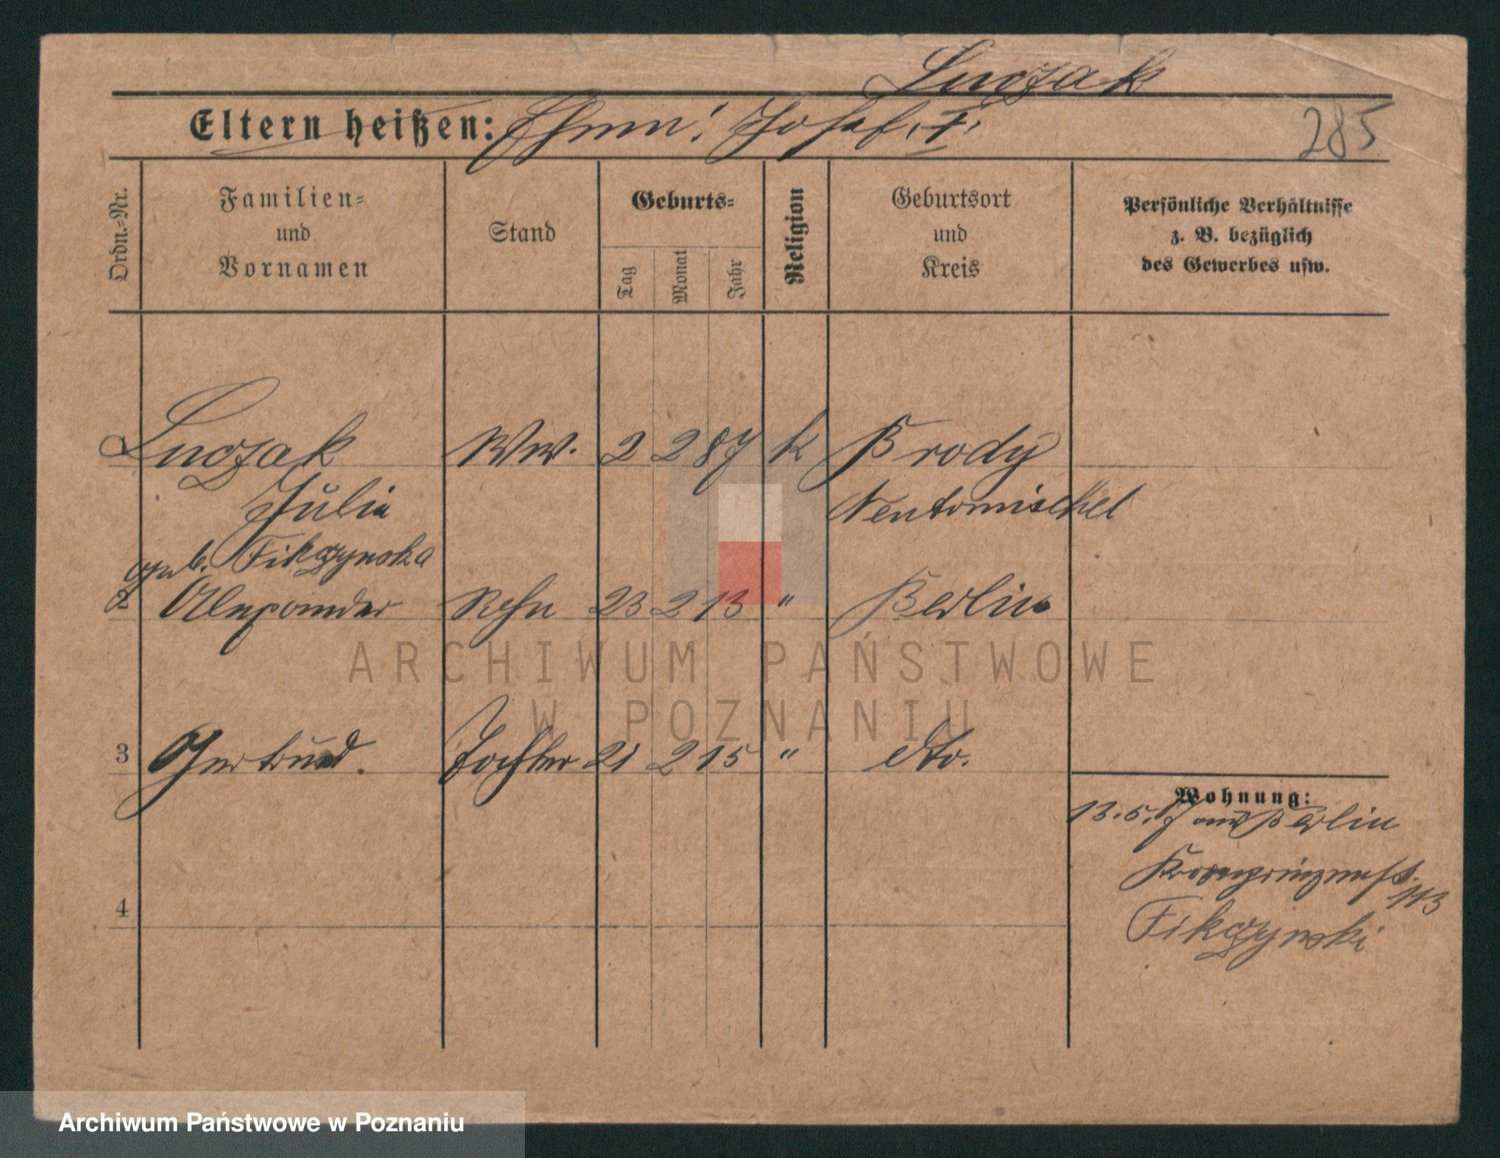 Luczak
Eltern heißen: Ehem: Josef, †,
285
Ordn.-Nr.
Familien-
und
Vornamen
Stand
Geburts-
Tag
Monat
Jahr
Religion
Geburtsort
und
Kreis
Persönliche Verhältnisse
z. B. bezüglich
des Gewerbes usw.
Luczak Ww. 2 2 87 k Brody
Julia Neutomischel
geb. Fikczynska
2 Alexander Sohn 23 2 13 " Berlin
ARCHIWUM PAŃSTWOWE
W POZNANIU
3 Gertrud. Tochter 21 2 15 " dto.
Wohnung:
13.5.17 aus Berlin
Kronprinzenst. 113
Fikczynski
4
Archiwum Państwowe w Poznaniu